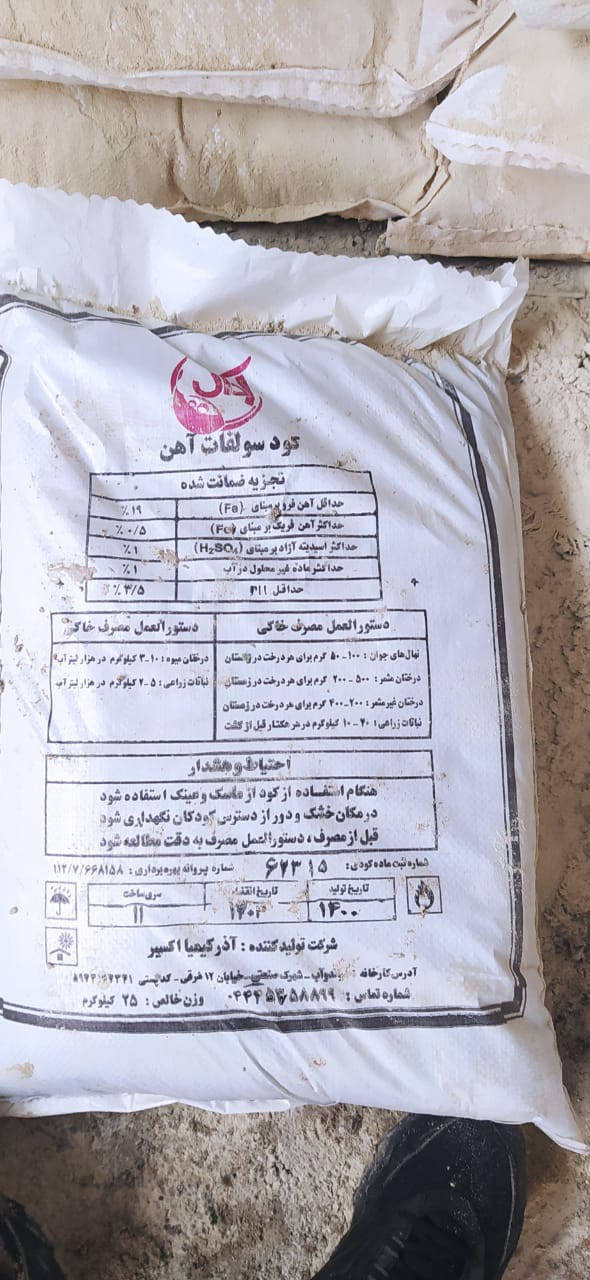 کود سولفات آهن
تجزیه ضمانت شده
حداقل آهن فرو برمبنای (Fe) ٪ ۱۹
حداکثر آهن فریک بر مبنای (Fe) ٪ ۰/۵
حداکثر اسیدیته آزاد بر مبنای (H₂SO₄) ٪ ۱
حداکثر ماده غیر محلول در آب ٪ ۱
حداقل ٪ ۳/۵
دستورالعمل مصرف خاکی
نهال‌های جوان : ۱۰۰-۵۰ گرم برای هر درخت در زمستان
درختان مثمر : ۵۰۰-۲۰۰ گرم برای هر درخت در زمستان
درختان غیرمثمر : ۲۰۰-۴۰۰ گرم برای هر درخت در زمستان
نباتات زراعی : ۴۰-۱۰ کیلوگرم در هر هکتار قبل از کشت
دستورالعمل مصرف خاکی
درختان میوه : ۱۰-۳ کیلوگرم در هزار لیتر آب
نباتات زراعی : ۵-۲ کیلوگرم در هزار لیتر آب
احتیاط و هشدار
هنگام استفاده از کود از ماسک و عینک استفاده شود
در مکان خشک و دور از دسترس کودکان نگهداری شود
قبل از مصرف ، دستورالعمل مصرف به دقت مطالعه شود
شماره ثبت ماده کودی : ۶۷۳۱۵ شماره پروانه بهره برداری : ۱۱۲/۷/۶۶۸۱۵۸
تاریخ تولید تاریخ انقضا سری ساخت
۱۴۰۰ ۱۴۰۲ ۱۱
شرکت تولید کننده : آذر کیمیا اکسیر
آدرس کارخانه شهرک صنعتی - خیابان ۱۲ شرقی - کدپستی
شماره تماس : وزن خالص : ۲۵ کیلوگرم